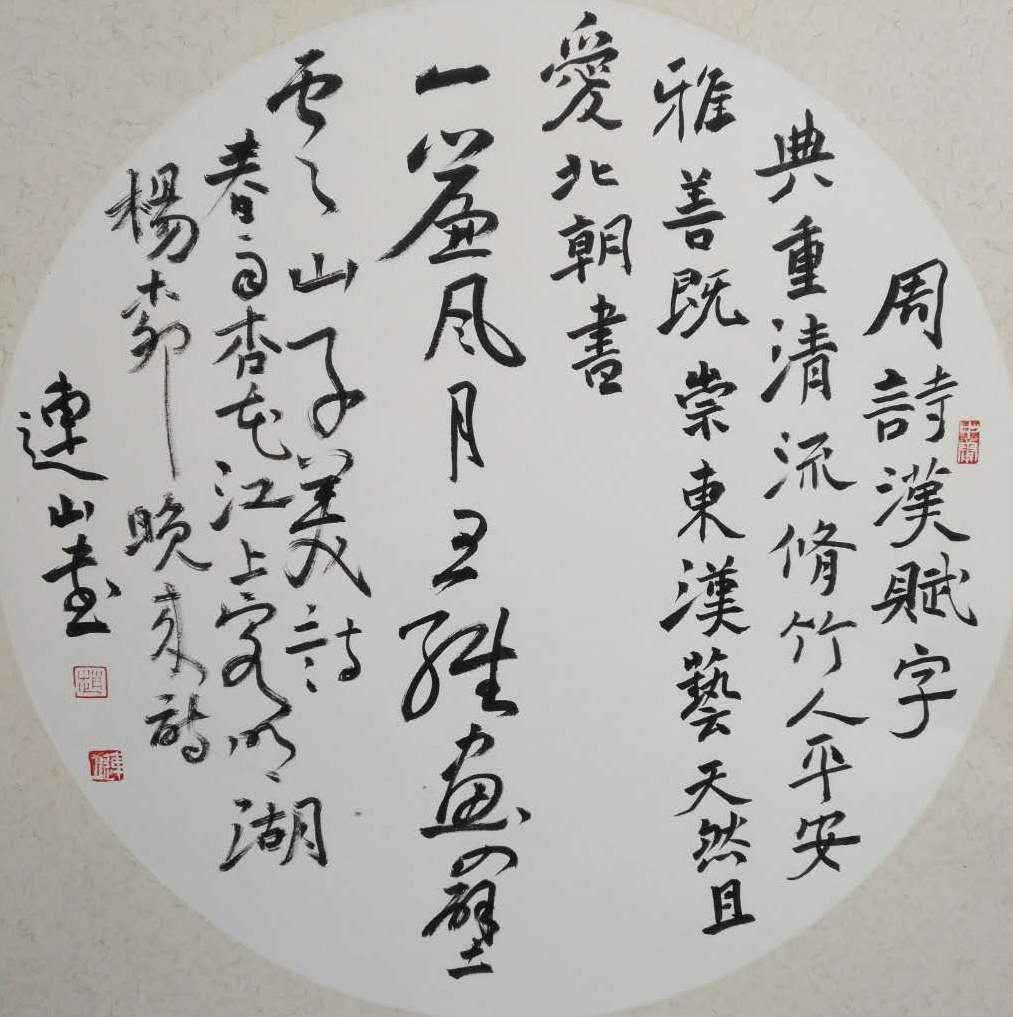 周詩漢賦字
典重清流脩竹人平安
雅善既崇東漢藝天然且
愛北朝書
一簾風月王維畫四壁
雲山子美詩
春雨杏花江上客明湖
楊柳晚來詩
連山書